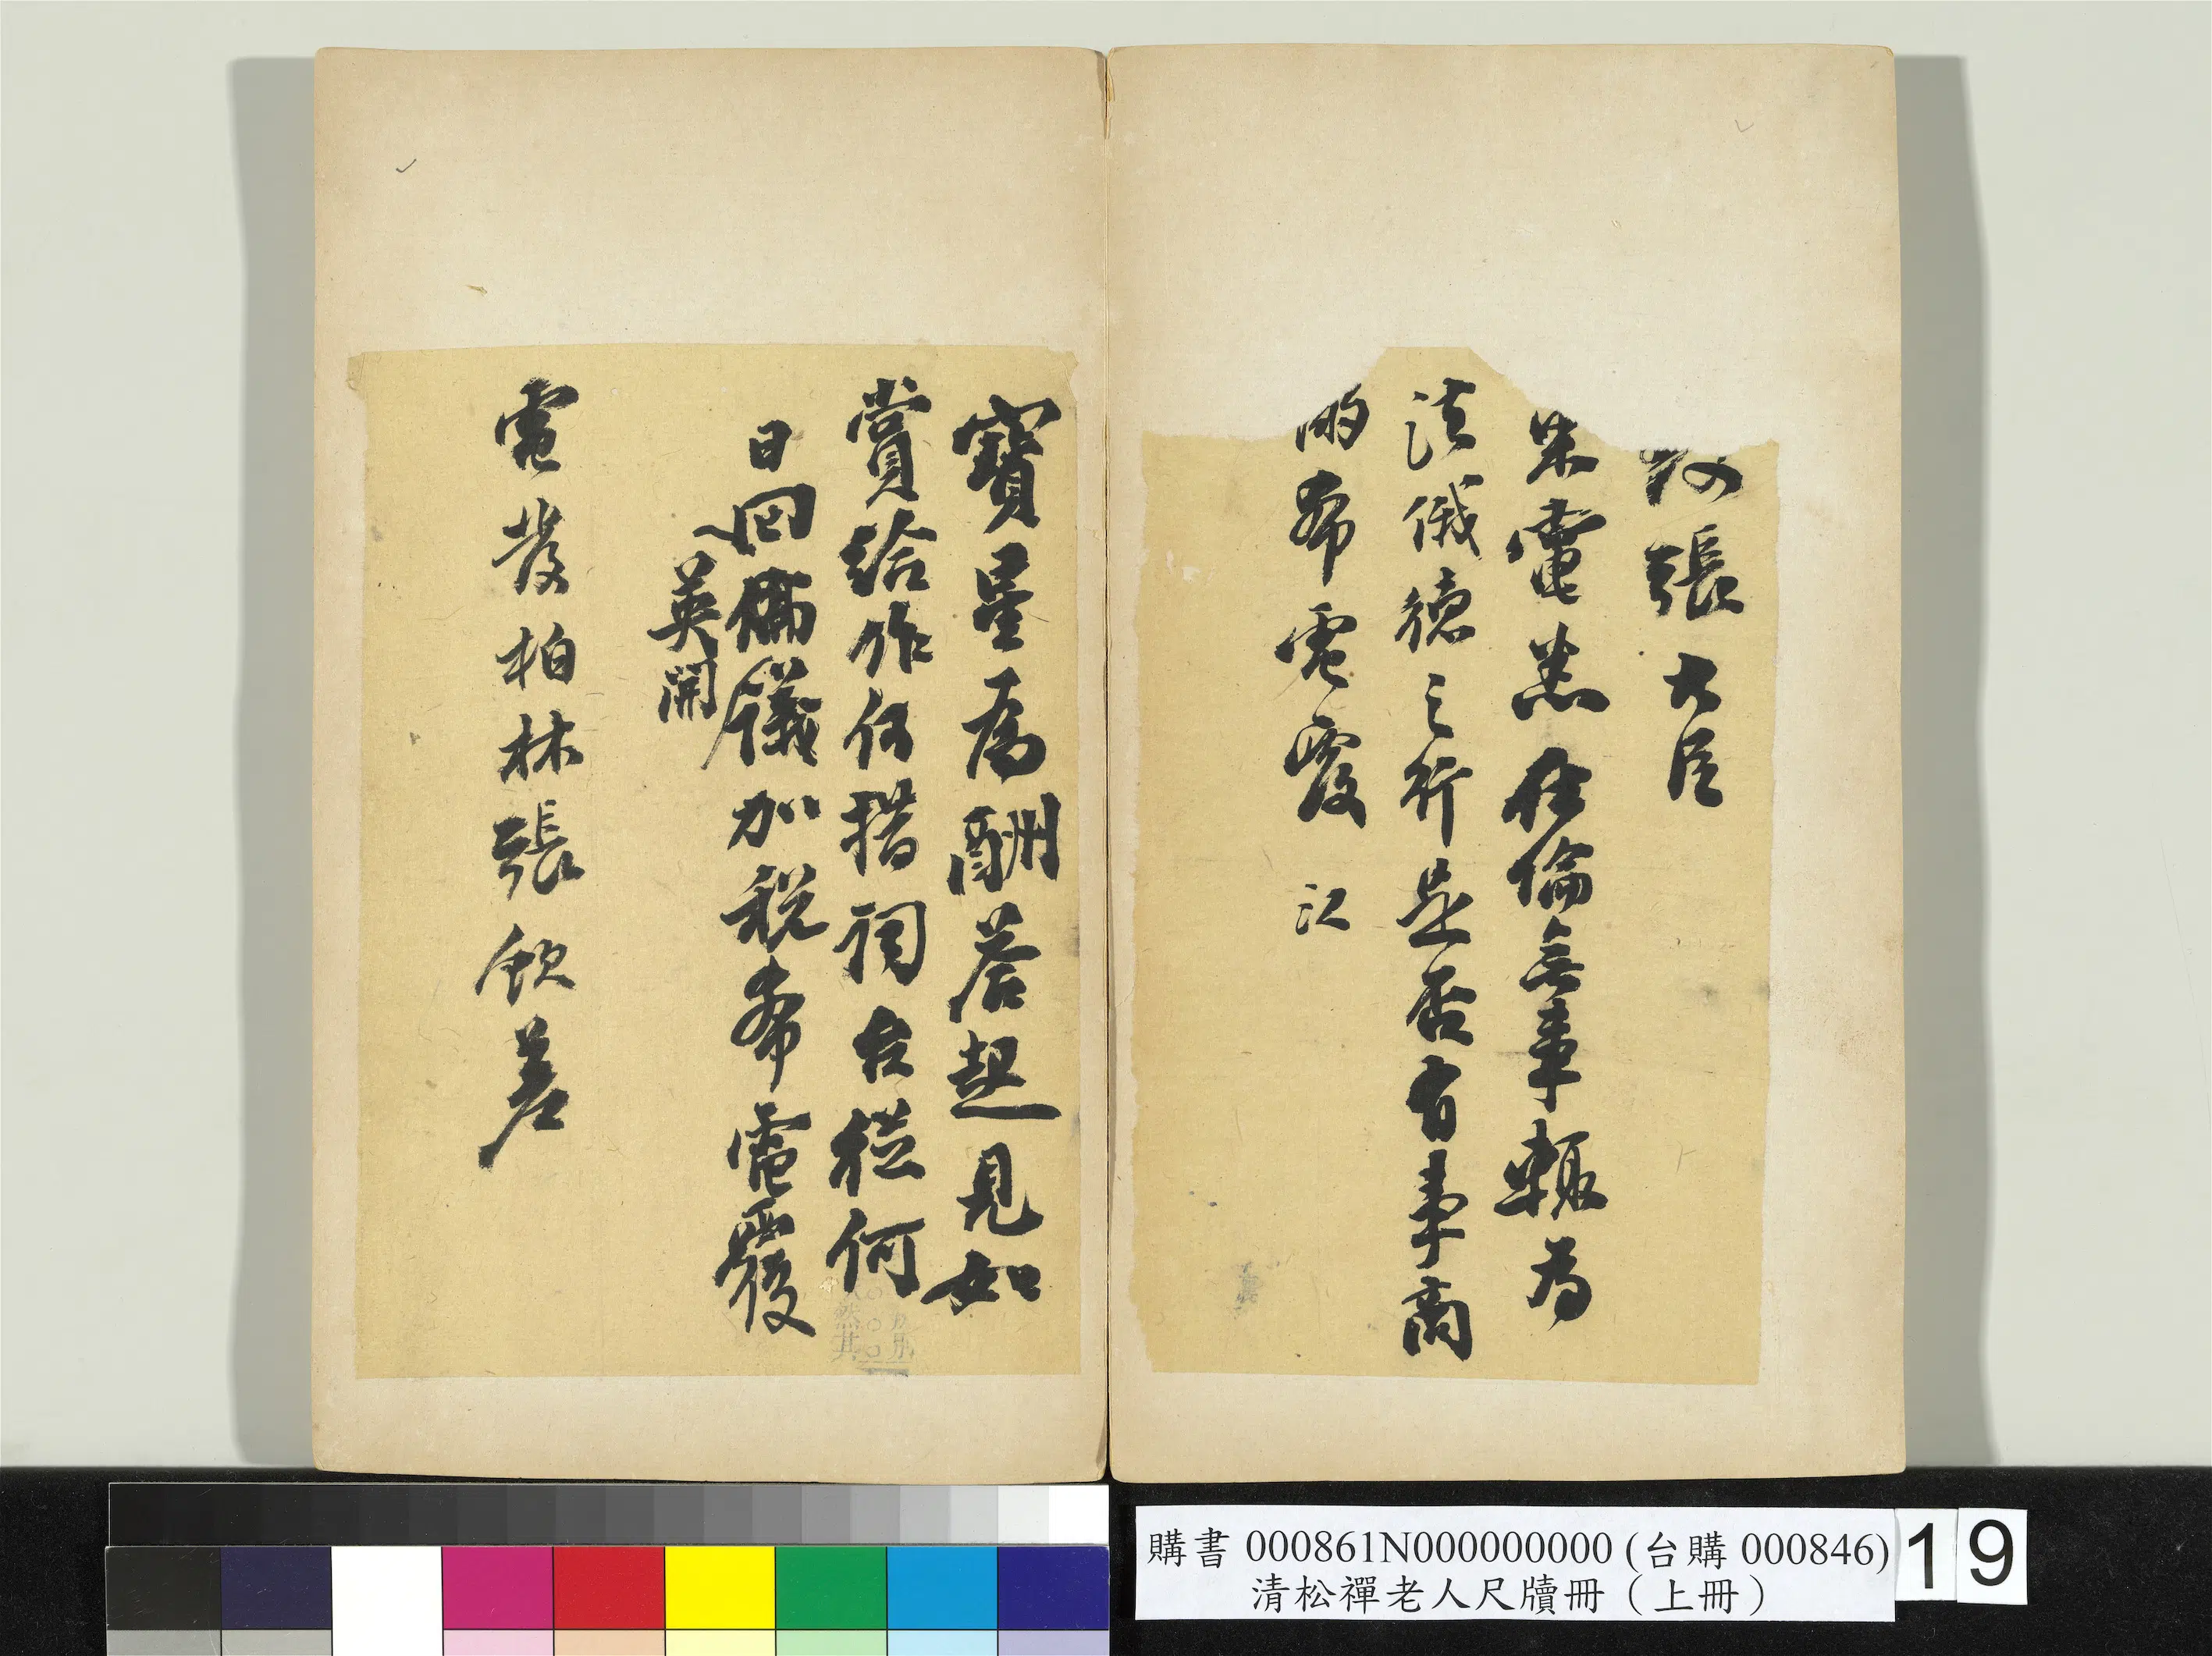 張大臣
朱電悉在倫無事輒為
法俄德之行是否有事商
酌希電覆 江
寶星為酬答起見如
賞給作何措詞台從何
日回倫議加税希電覆
英開
電發柏林張欽差
然其
購書 000861N000000000 (台購 000846)
清松禪老人尺牘冊（上冊）
19